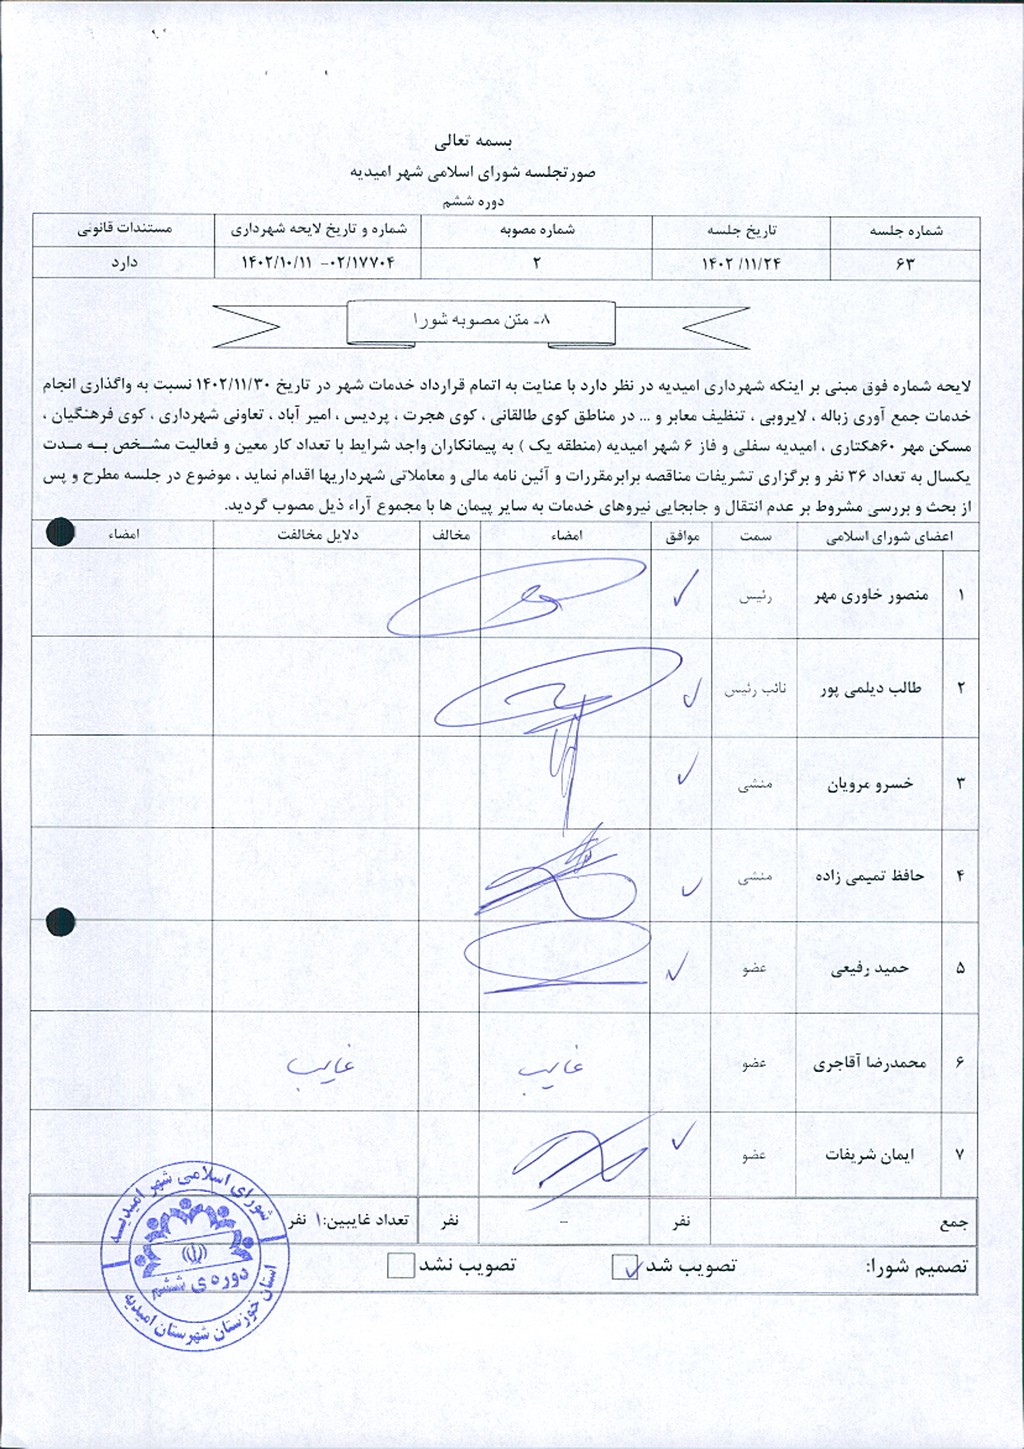 بسمه تعالی
صورتجلسه شورای اسلامی شهر امیدیه
دوره ششم
شماره جلسه تاریخ جلسه شماره مصوبه شماره و تاریخ لایحه شهرداری مستندات قانونی
۶۳ ۱۴۰۲/۱۱/۲۴ ۲ ۰۲/۱۷۷۰۴- ۱۴۰۲/۱۰/۱۱ دارد
۸- متن مصوبه شورا
لایحه شماره فوق مبنی بر اینکه شهرداری امیدیه در نظر دارد با عنایت به اتمام قرارداد خدمات شهر در تاریخ ۱۴۰۲/۱۱/۳۰ نسبت به واگذاری انجام
خدمات جمع آوری زباله ، لایروبی ، تنظیف معابر و ... در مناطق کوی طالقانی ، کوی هجرت ، پردیس ، امیر آباد ، تعاونی شهرداری ، کوی فرهنگیان ،
مسکن مهر ۶۰هکتاری ، امیدیه سفلی و فاز ۶ شهر امیدیه (منطقه یک ) به پیمانکاران واجد شرایط با تعداد کار معین و فعالیت مشخص به مدت
یکسال به تعداد ۳۶ نفر و برگزاری تشریفات مناقصه برابرمقررات و آئین نامه مالی و معاملاتی شهرداریها اقدام نماید ، موضوع در جلسه مطرح و پس
از بحث و بررسی مشروط بر عدم انتقال و جابجایی نیروهای خدمات به سایر پیمان ها با مجموع آراء ذیل مصوب گردید.
اعضای شورای اسلامی سمت موافق امضاء مخالف دلایل مخالفت امضاء
۱ منصور خاوری مهر رئیس ✓
۲ طالب دیلمی پور نائب رئیس ✓
۳ خسرو مرویان منشی ✓
۴ حافظ تمیمی زاده منشی ✓
۵ حمید رفیعی عضو ✓
۶ محمدرضا آقاجری عضو غایب غایب
۷ ایمان شریفات عضو ✓
جمع نفر - نفر تعداد غایبین:۱ نفر
تصمیم شورا: تصویب شد ✓ تصویب نشد
شورای اسلامی شهر امیدیه
دوره ی ششم
استان خوزستان شهرستان امیدیه